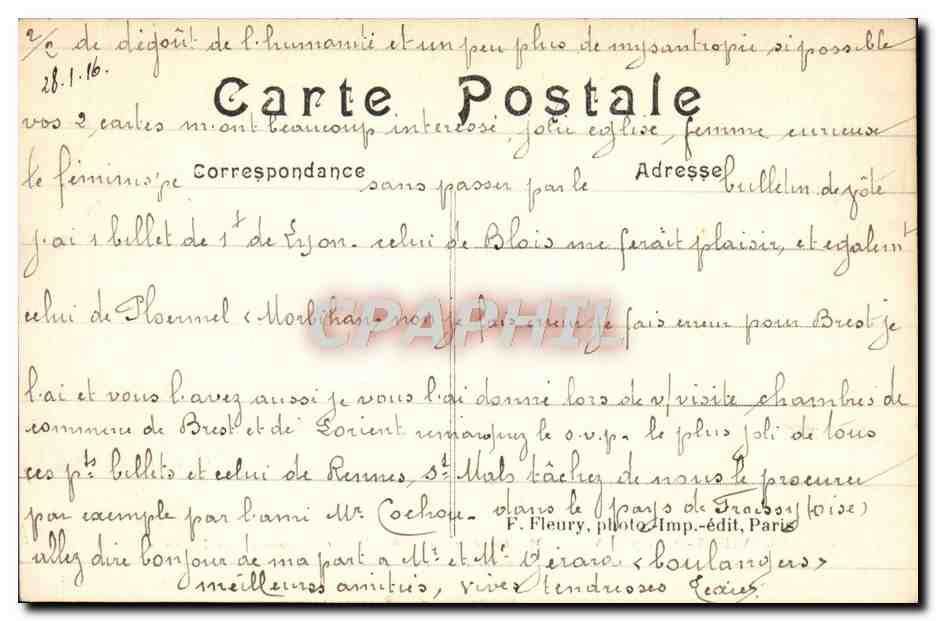 2/2 de dégoût de l.humanité et un peu plus de mysantropie si possible
28.1.16.
Carte Postale
vos 2 cartes m.ont beaucoup interessé, jolie eglise, femme curieuse
Correspondance
Adresse
le feminis sans passer par le bulletin de
j.ai 1 billet de 1f de Lyon. celui de Blois me ferait plaisir, et egalemt
celui de Ploermel (Morbihan) non je fais erreur je fais erreur pour Brest je
CPAPHIL
l.ai et vous l.avez aussi je vous l.ai donné lors de v/ visite, chambres de
commerce de Brest et de Lorient remarquez le s.v.p. le plus joli de tous
ces pts billets et celui de Rennes, St Malo tâchez de nous le procurer
par exemple par l.ami Mr Cochou dans le pays de Froissy (oise)
F. Fleury, photo-Imp.-édit, Paris
allez dire bonjour de ma part a Mr et Me Gérard (boulangers)
meilleures amitiés, vives tendresses